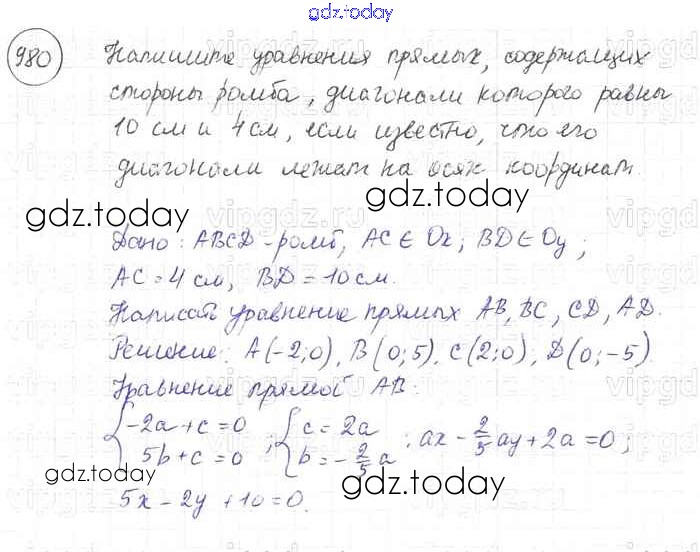 gdz.today
980 Напишите уравнения прямых, содержащих
стороны ромба, диагонали которого равны
10 см и 4 см, если известно, что его
диагонали лежат на осях координат.
gdz.today
gdz.today
Дано: ABCD - ромб, AC ∈ Ox; BD ∈ Oy;
AC = 4 см, BD = 10 см.
Написать уравнение прямых AB, BC, CD, AD.
Решение: A(-2;0), B(0;5), C(2;0), D(0;-5).
Уравнение прямой AB:
{-2a + c = 0 ; {c = 2a ; ax - 2/5 ay + 2a = 0;
{5b + c = 0 {b = -2/5 a
gdz.today
gdz.today
5x - 2y + 10 = 0.